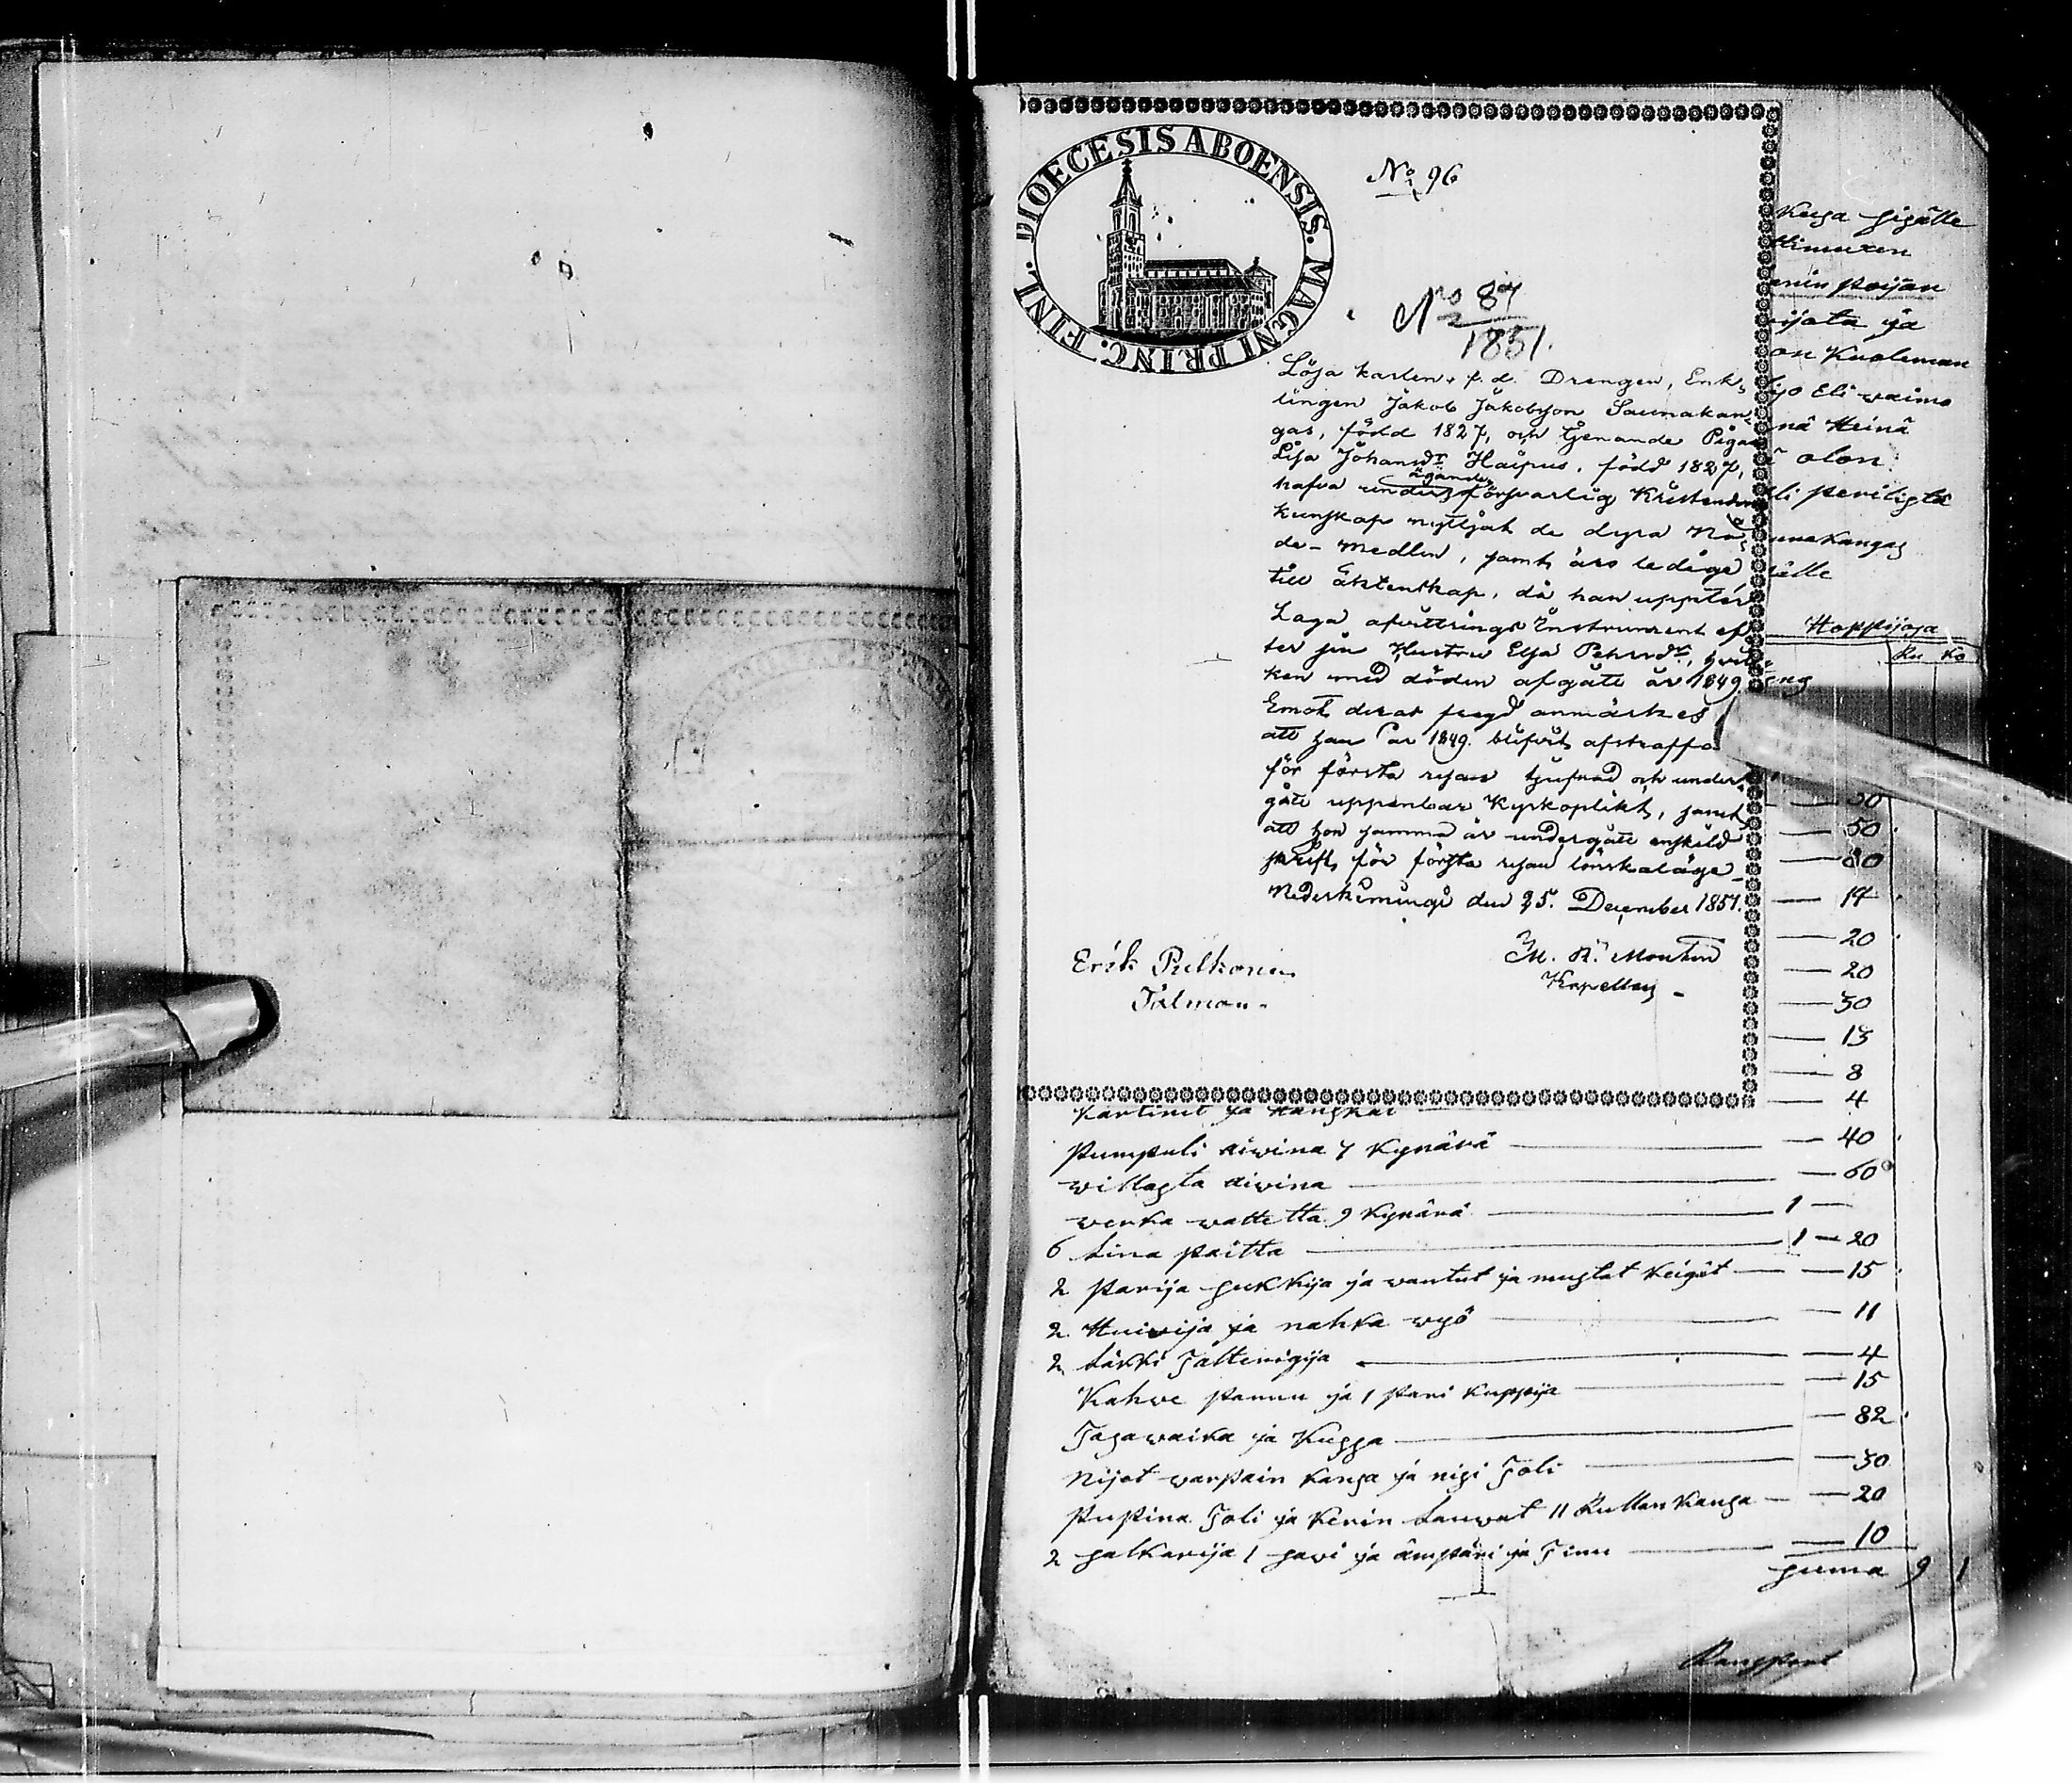 DIOECESIS ABOENSIS. MAGNI PRINC. FINL.
No 96
No 87
1851.
Lösa karlen, f. d. Drengen, Enk-
lingen Jakob Jakobsson Saunakan-
gas, född 1827, och tjenande Pigan
Lisa Johansdr Haipus, född 1827,
hafva under ägande försvarlig Kristendoms
kunskap nyttjat de dyra Nå-
de-medlen, samt äro ledige
till äktenskap, då han uppter
Laga afvittrings Instrument ef-
ter sin Hustru Elsa Pehrsdr, hvil-
ken med döden afgått år 1849.
Emot deras fregd anmärkes
att han år 1849. blifvit afstraffa
för första resan tjufnad och under-
gått uppenbar Kyrkoplikt, samt
att hon samma år undergått enskild
skrift för första resan lönskaläge
Nederkimingi den 25. December 1851.
Erik Pulkonen
Tålman.
Kapellan
Kuga sigälle
poijan
ja
on Kuoleman
Eli waimo
nä Heinä
olon
li periligtä
unakangas
älle
Hoppijaga
Ru Ko
30
50
80
14
20
20
30
13
8
4
Kartinit ja Kangkat
Pumpuli aiwina 7 Kynärä 40
willagta aiwina 60
werka wattetta 9 Kynärä 1
6 Lina paitta 1 20
2 Parija sukkija ja wantut ja mustat Keigöt 15
2 Huivija ja nahka wyö 11
2 Läkki Jalterigija 4
Kahwe pannu ja 1 pari Kuppija 15
Jagawaika ja Kugga 82
Nijot warpain Kanga ja nigi Joli 30
Pupina Joli ja Kerin Lauwat 11 Rullan Kanga 20
2 halkarija 1 hawi ja ämpäri ja Tinu 10
suma 9 1